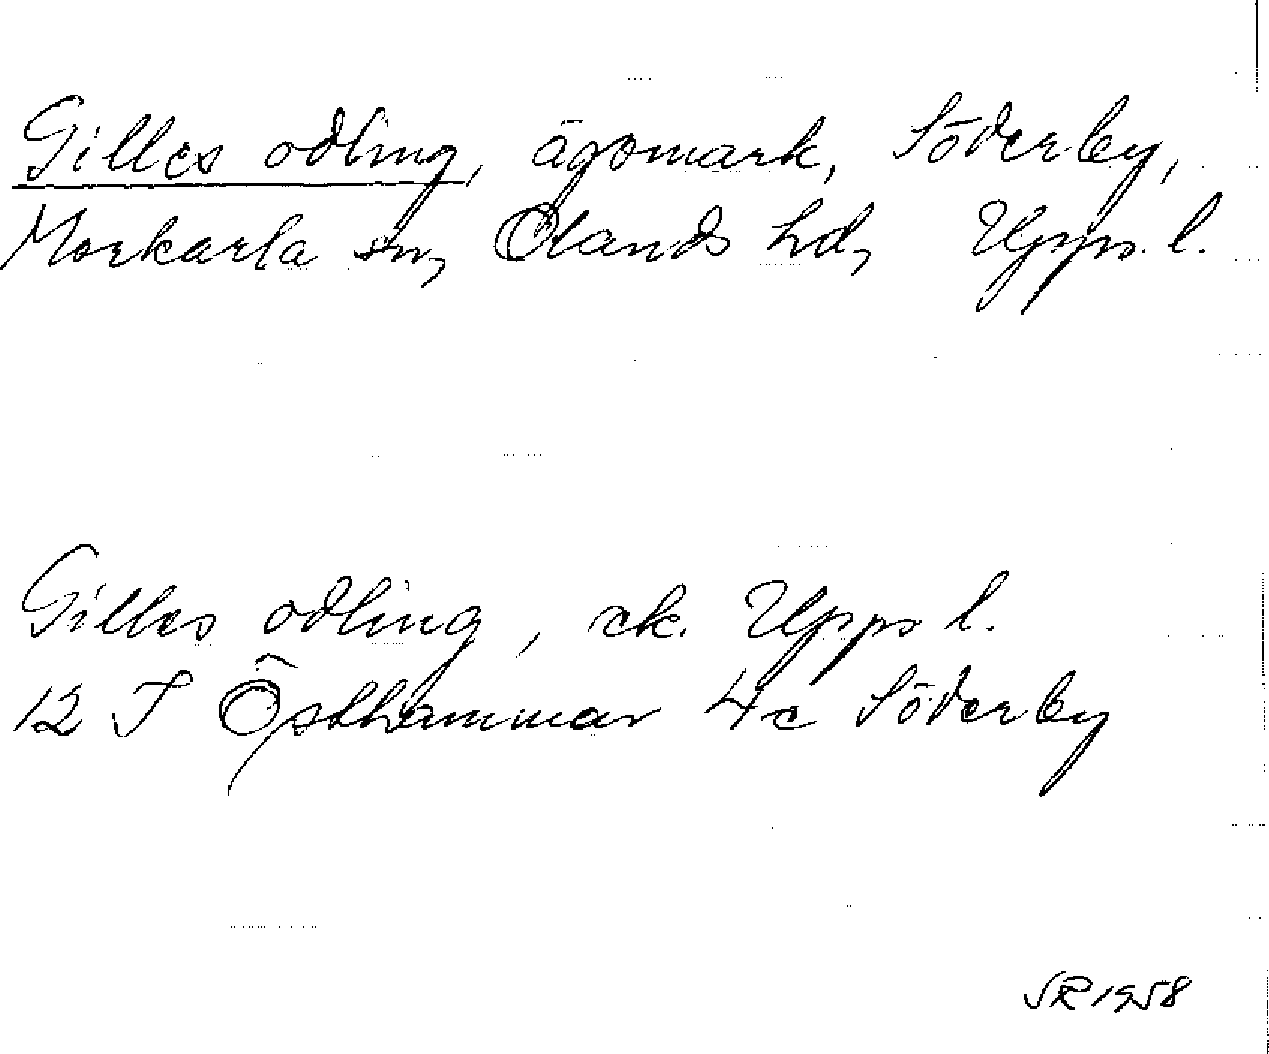 Gilles odling, ägomark, Söderby,
Morkarla sn, Olands hd, Upps. l.
Gilles odling, ek. Upps l.
12 I Östhammar 4c Söderby
SR 1958